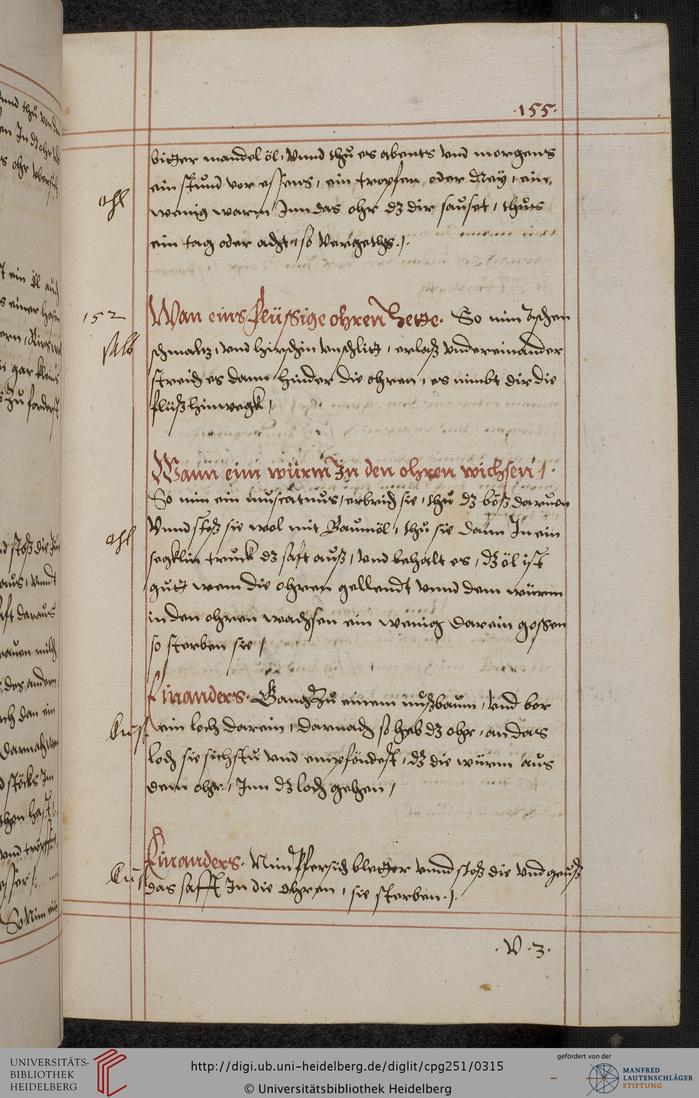 ·155·
bitter mandel öl, vnnd thu es abents vnd morgens
ein stund vor essens, ein tropfen, oder drey, ein
öhl
wenig warm Inn das ohr dz dir sauset, thus
ein tag oder acht, so vergehts.
152
Wan eins flüssige ohren hette. So nim äschen
salb
schmaltz, vnd hirschin vnschlitt, erlaß vndereinander
streich es dann hinder die ohren, es nimbt dir die
flüß hinwegk,
Wann eim würm In den ohren wichsen.
So nim ein muscatnus, erbrich sie, thu dz böß daruon
öhl
Vnnd stoß sie wol mit Baumöl, thu sie dann In ein
secklin truck dz saft auß, vnd behalt es, dz öl ist
gutt wem die ohren gellendt vnnd dem würm
in den ohren wachsen ein wenig darein gossen
so sterben sie,
Einanders. Gang zu einem nußbaum, vnd bor
ein loch darein, darnach so heb dz ohr, an das
loch sie sichstu vnd empfindest, dz die würm aus
dem ohr, Inn dz loch gehen,
Einanders. Nim Pfersich bletter vnnd stoß die vnd geuß
das safft In die ohren, sie sterben.
·V·3·
UNIVERSITÄTS-
BIBLIOTHEK
HEIDELBERG
http://digi.ub.uni-heidelberg.de/diglit/cpg251/0315
© Universitätsbibliothek Heidelberg
gefördert von der
MANFRED
LAUTENSCHLÄGER
STIFTUNG